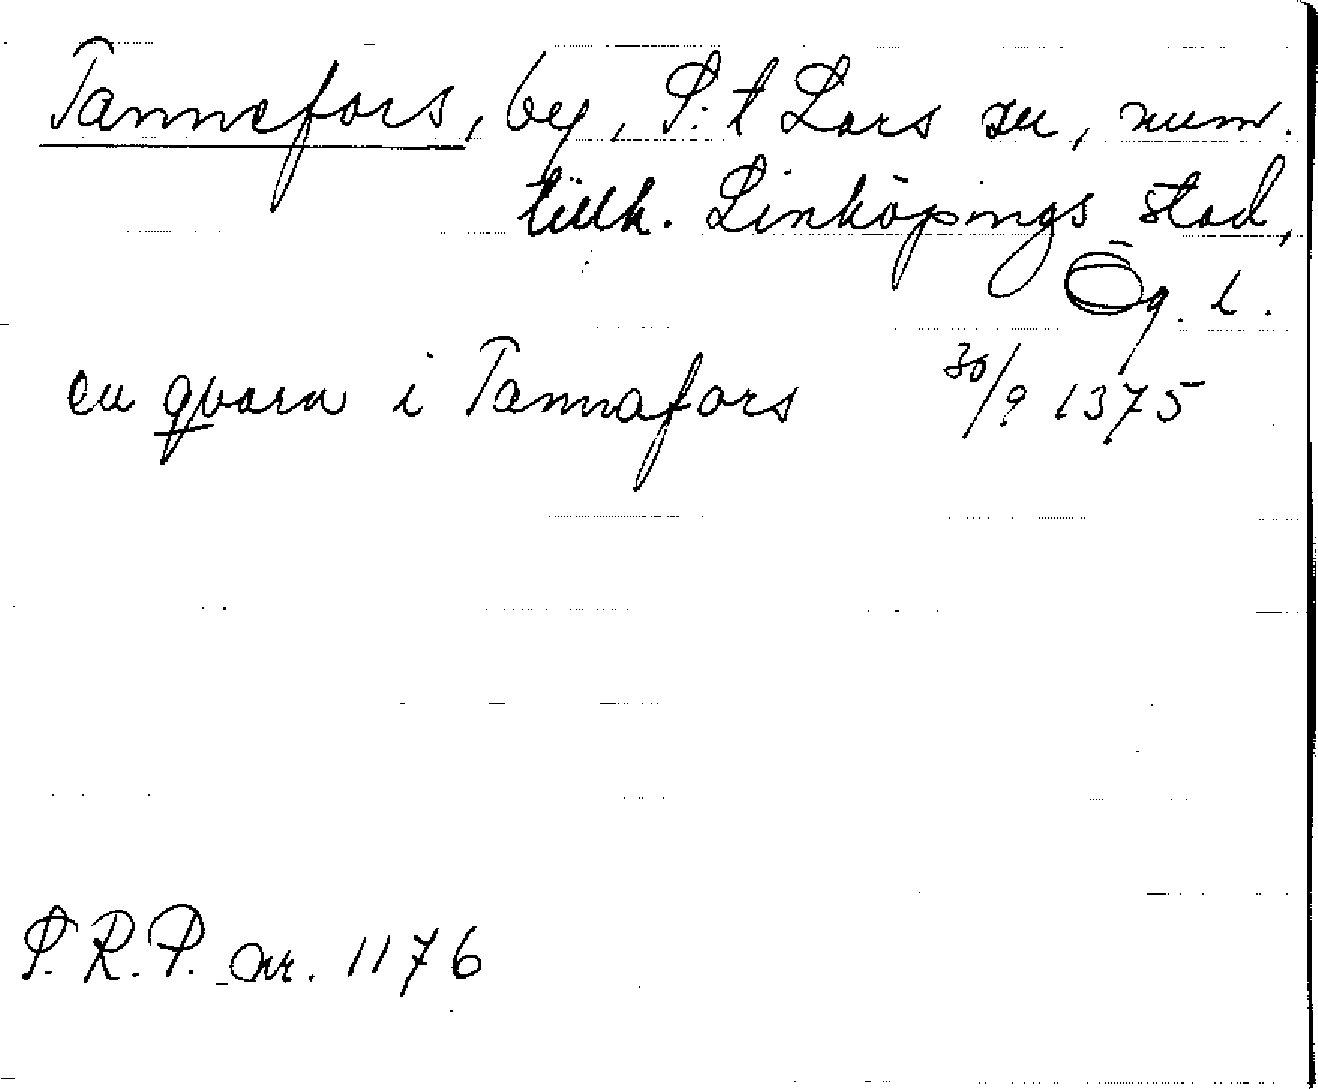 Tannefors, by, S:t Lars sn, num.
tillh. Linköpings stad,
Ög. l.
en qvarn i Tannafors 30/9 1375
S.R.P. nr. 1176